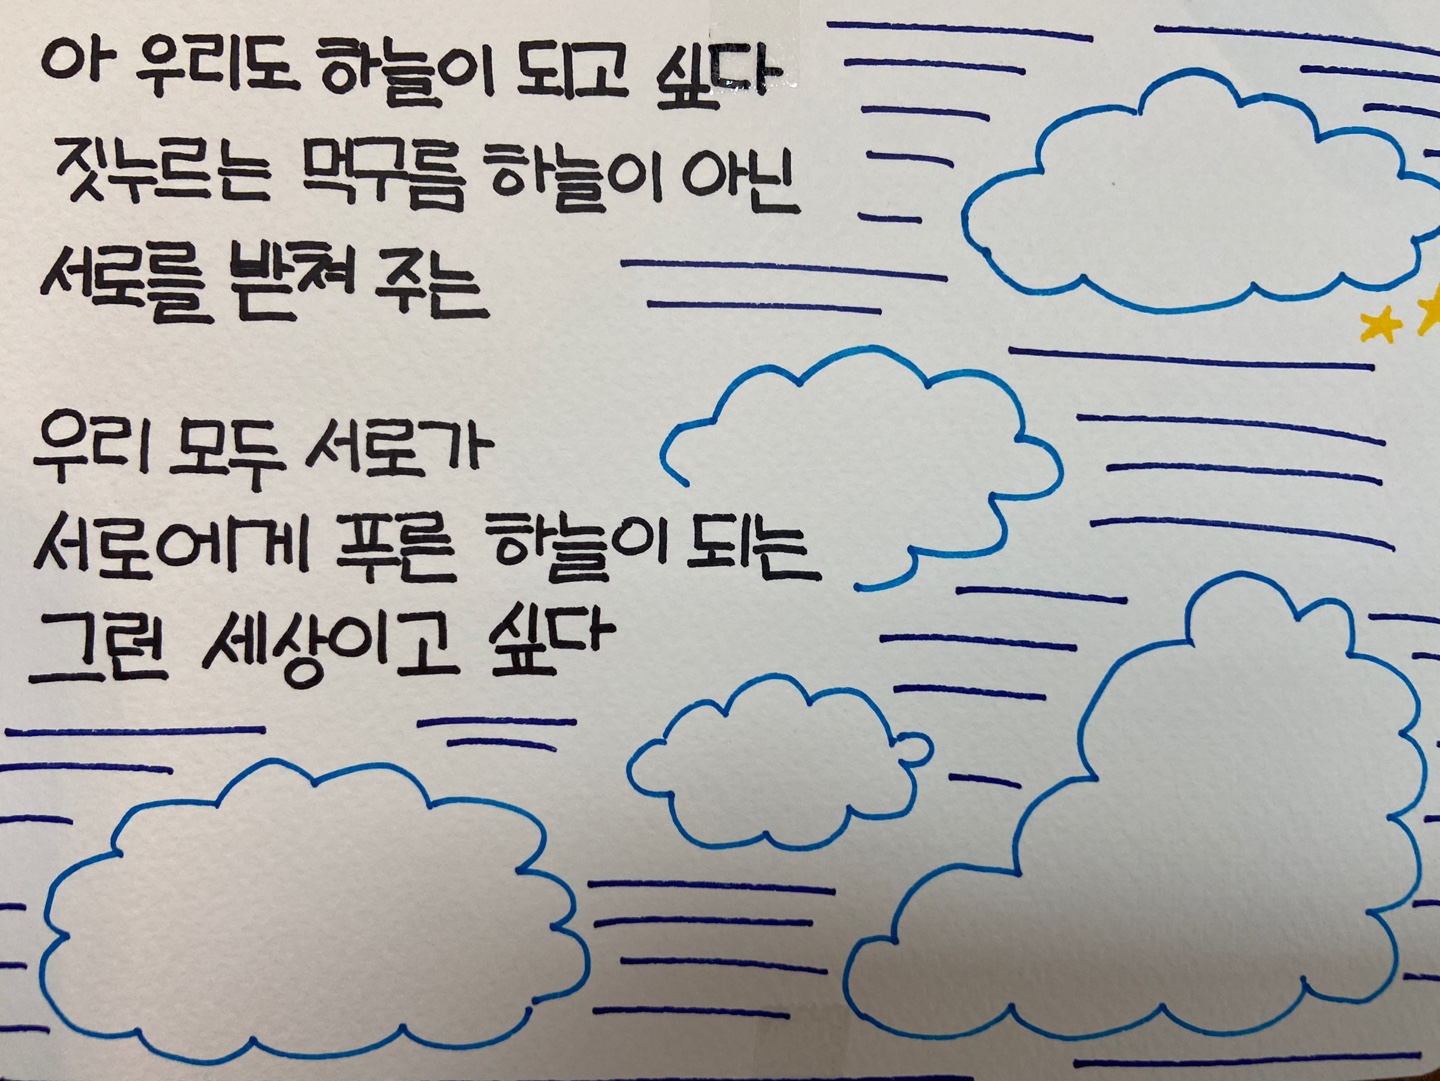 아 우리도 하늘이 되고 싶다
짓누르는 먹구름 하늘이 아닌
서로를 받쳐 주는
우리 모두 서로가
서로에게 푸른 하늘이 되는
그런 세상이고 싶다